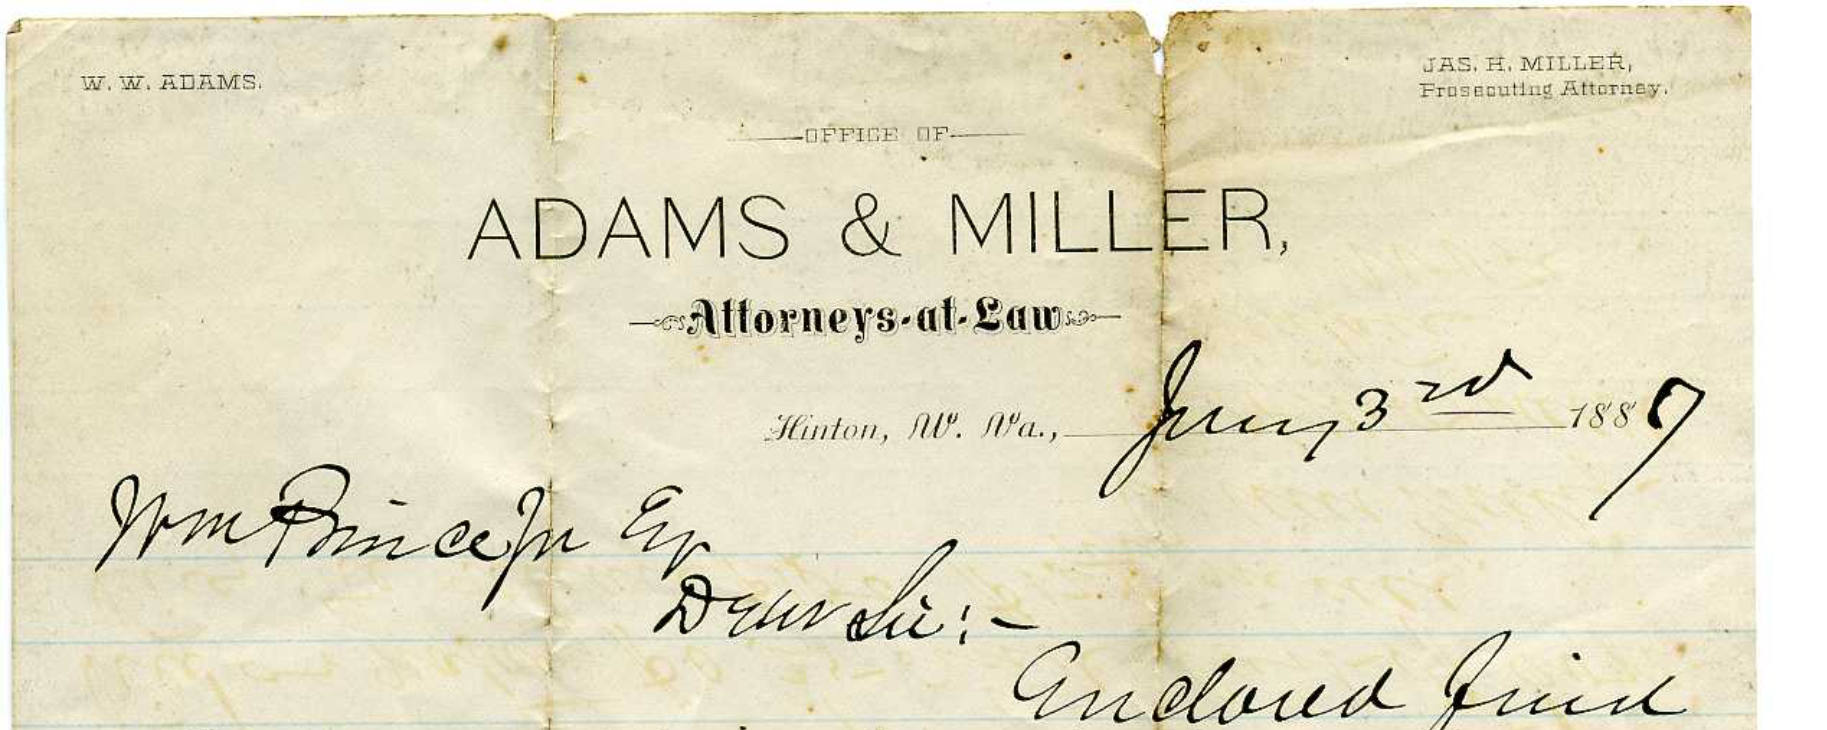 W. W. ADAMS.
JAS. H. MILLER,
Prosecuting Attorney.
OFFICE OF
ADAMS & MILLER,
Attorneys-at-Law
Hinton, W. Va., Jany 3rd 1887
Wm Prince Jr Esq
Dear Sir:-
Enclosed find